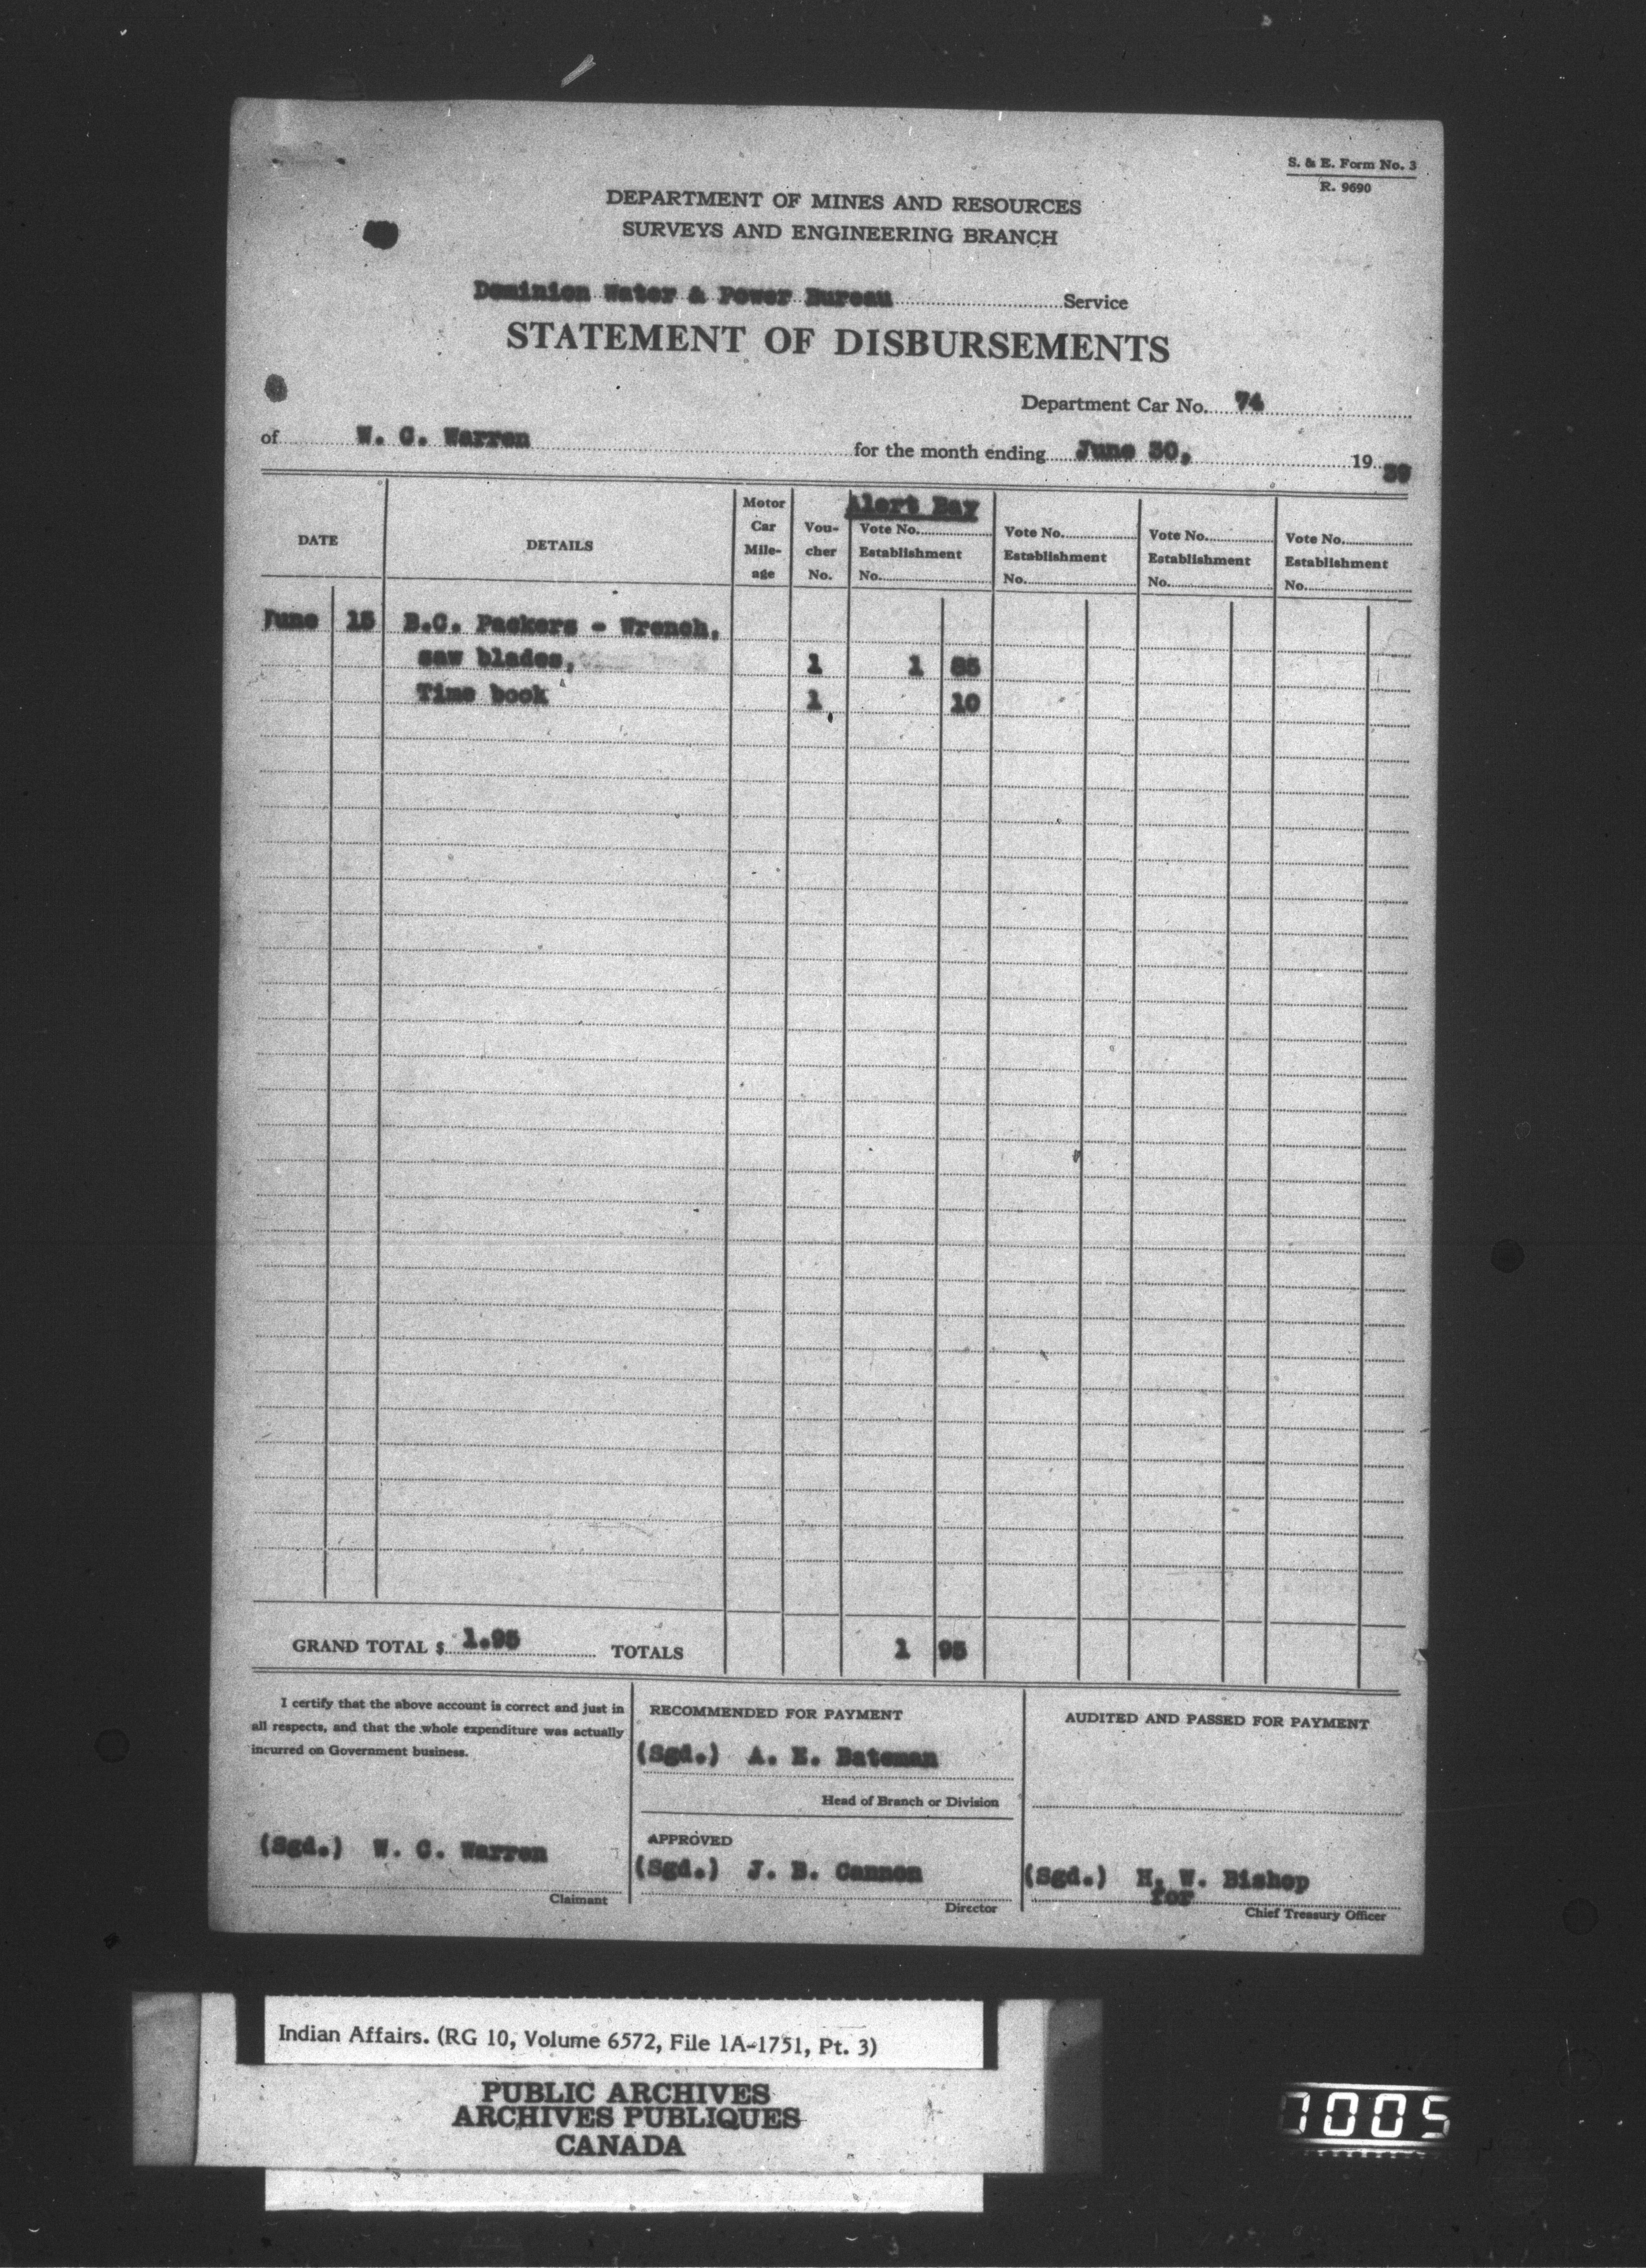 S. & E. Form No. 3
R. 9690
DEPARTMENT OF MINES AND RESOURCES
SURVEYS AND ENGINEERING BRANCH
Dominion Water & Power Bureau Service
STATEMENT OF DISBURSEMENTS
Department Car No. 74
of W. C. Warren for the month ending June 30, 19 39
DATE DETAILS Motor Car Mile- age Vou- cher No. Alert Bay Vote No. Establishment No. Vote No. Establishment No. Vote No. Establishment No. Vote No. Establishment No.
June 15 B.C. Packers - Wrench,
saw blades, 1 1 85
Time book 1 10
GRAND TOTAL $ 1.95 TOTALS 1 95
I certify that the above account is correct and just in
all respects, and that the whole expenditure was actually
incurred on Government business.
(Sgd.) W. C. Warren
Claimant
RECOMMENDED FOR PAYMENT
(Sgd.) A. E. Bateman
Head of Branch or Division
APPROVED
(Sgd.) J. B. Cannon
Director
AUDITED AND PASSED FOR PAYMENT
(Sgd.) H. W. Bishop
for
Chief Treasury Officer
Indian Affairs. (RG 10, Volume 6572, File 1A-1751, Pt. 3)
PUBLIC ARCHIVES
ARCHIVES PUBLIQUES
CANADA
1005